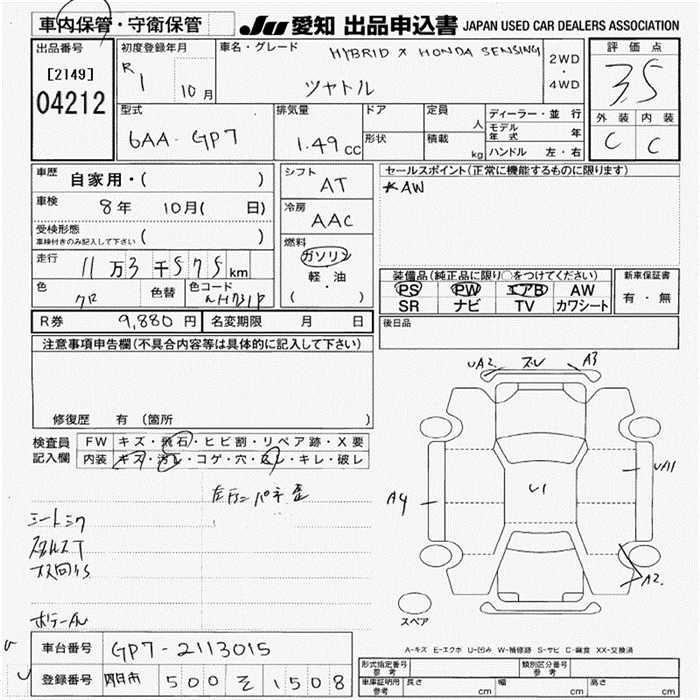 車内保管・守衛保管
JU 愛知 出品申込書 JAPAN USED CAR DEALERS ASSOCIATION
出品番号
[2149]
04212
初度登録年月
R1
10月
車名・グレード
HYBRID X HONDA SENSING
シャトル
2WD
・
4WD
評価点
3.5
外装 内装
C C
型式
6AA-GP7
排気量
1.49cc
ドア
形状
定員
人
積載
kg
ディーラー・並行
モデル年式 年
ハンドル 左・右
車歴
自家用・( )
車検
8年 10月( 日)
受検形態
車検付きのみ記入して下さい ( )
走行
11万3千575km
色
クロ
色替
色コード
NH731P
シフト
AT
冷房
AAC
燃料
ガソリン
軽・油
( )
セールスポイント(正常に機能するものに限ります)
AW
装備品(純正品に限り○をつけてください)
PS PW エアB AW
SR ナビ TV カワシート
新車保証書
有・無
後日品
R券 9,880円 名変期限 月 日
注意事項申告欄(不具合内容等は具体的に記入して下さい)
修復歴 有(箇所 )
検査員
記入欄
FW キズ・飛石・ヒビ割・リペア跡・X要
内装 キズ・汚レ・コゲ・穴・スレ・キレ・破レ
シートシワ
UA2
ズレ
A3
U1
UA11
A4
A2
スペア
A-キズ E-エクボ U-凹み W-補修跡 S-サビ C-腐食 XX-交換済
車台番号 GP7-2113015
登録番号 四日市 500 そ 1508
形式指定番号
参考
類別区分番号
参考
車庫証明用
参考
長さ cm
幅 cm
高さ cm